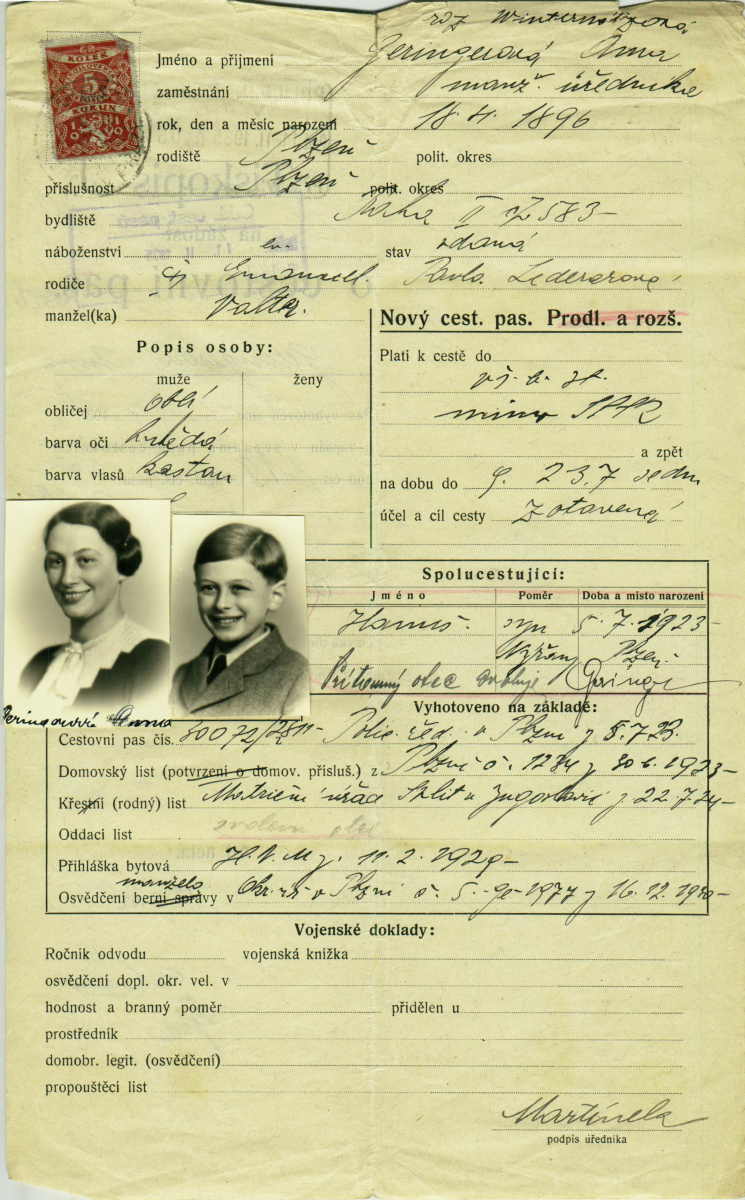 roz Winternitzová
Jméno a přijmení Geringerová Anna
zaměstnání manž. úředníka
rok, den a měsíc narození 18. 4. 1896
rodiště Plzeň polit. okres
příslušnost Plzeň polit. okres
bydliště Praha II 583-
náboženství stav vdaná
rodiče Emanuel Pavla Ledererová
manžel(ka) Valter
KOLEK
5
KORUN
1919
Nový cest. pas. Prodl. a rozš.
Popis osoby:
muže ženy
obličej oblí
barva očí hnědá
barva vlasů kaštan
Platí k cestě do
mimo SSSR
a zpět
na dobu do 9. 237
účel a cíl cesty zotavená
Spolucestující:
Jméno Poměr Doba a místo narození
Hanuš syn 5. 7. 1923-
Plzeň
Přítomný otec svoluje Geringer
Geringerová Anna
Vyhotoveno na základě:
Cestovní pas čís. 80072/28 Polic. řed. v Plzni z 5.7.28.
Domovský list (potvrzení o domov. přísluš.) z Plzně č. 1234 z 30 6. 1923-
Křestní (rodný) list Matriční úřad Split v Jugoslavii z 22.7.24-
Oddací list
Přihláška bytová 11. 2. 1929-
manžela
Osvědčení berní správy v Plzni č. 5.-90-1977 z 16. 12. 1930-
Vojenské doklady:
Ročník odvodu vojenská knížka
osvědčení dopl. okr. vel. v
hodnost a branný poměr přidělen u
prostředník
domobr. legit. (osvědčení)
propouštěcí list
Martínek
podpis úředníka